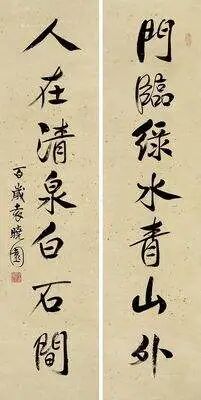 門臨綠水青山外
人在清泉白石間
百歲袁曉園